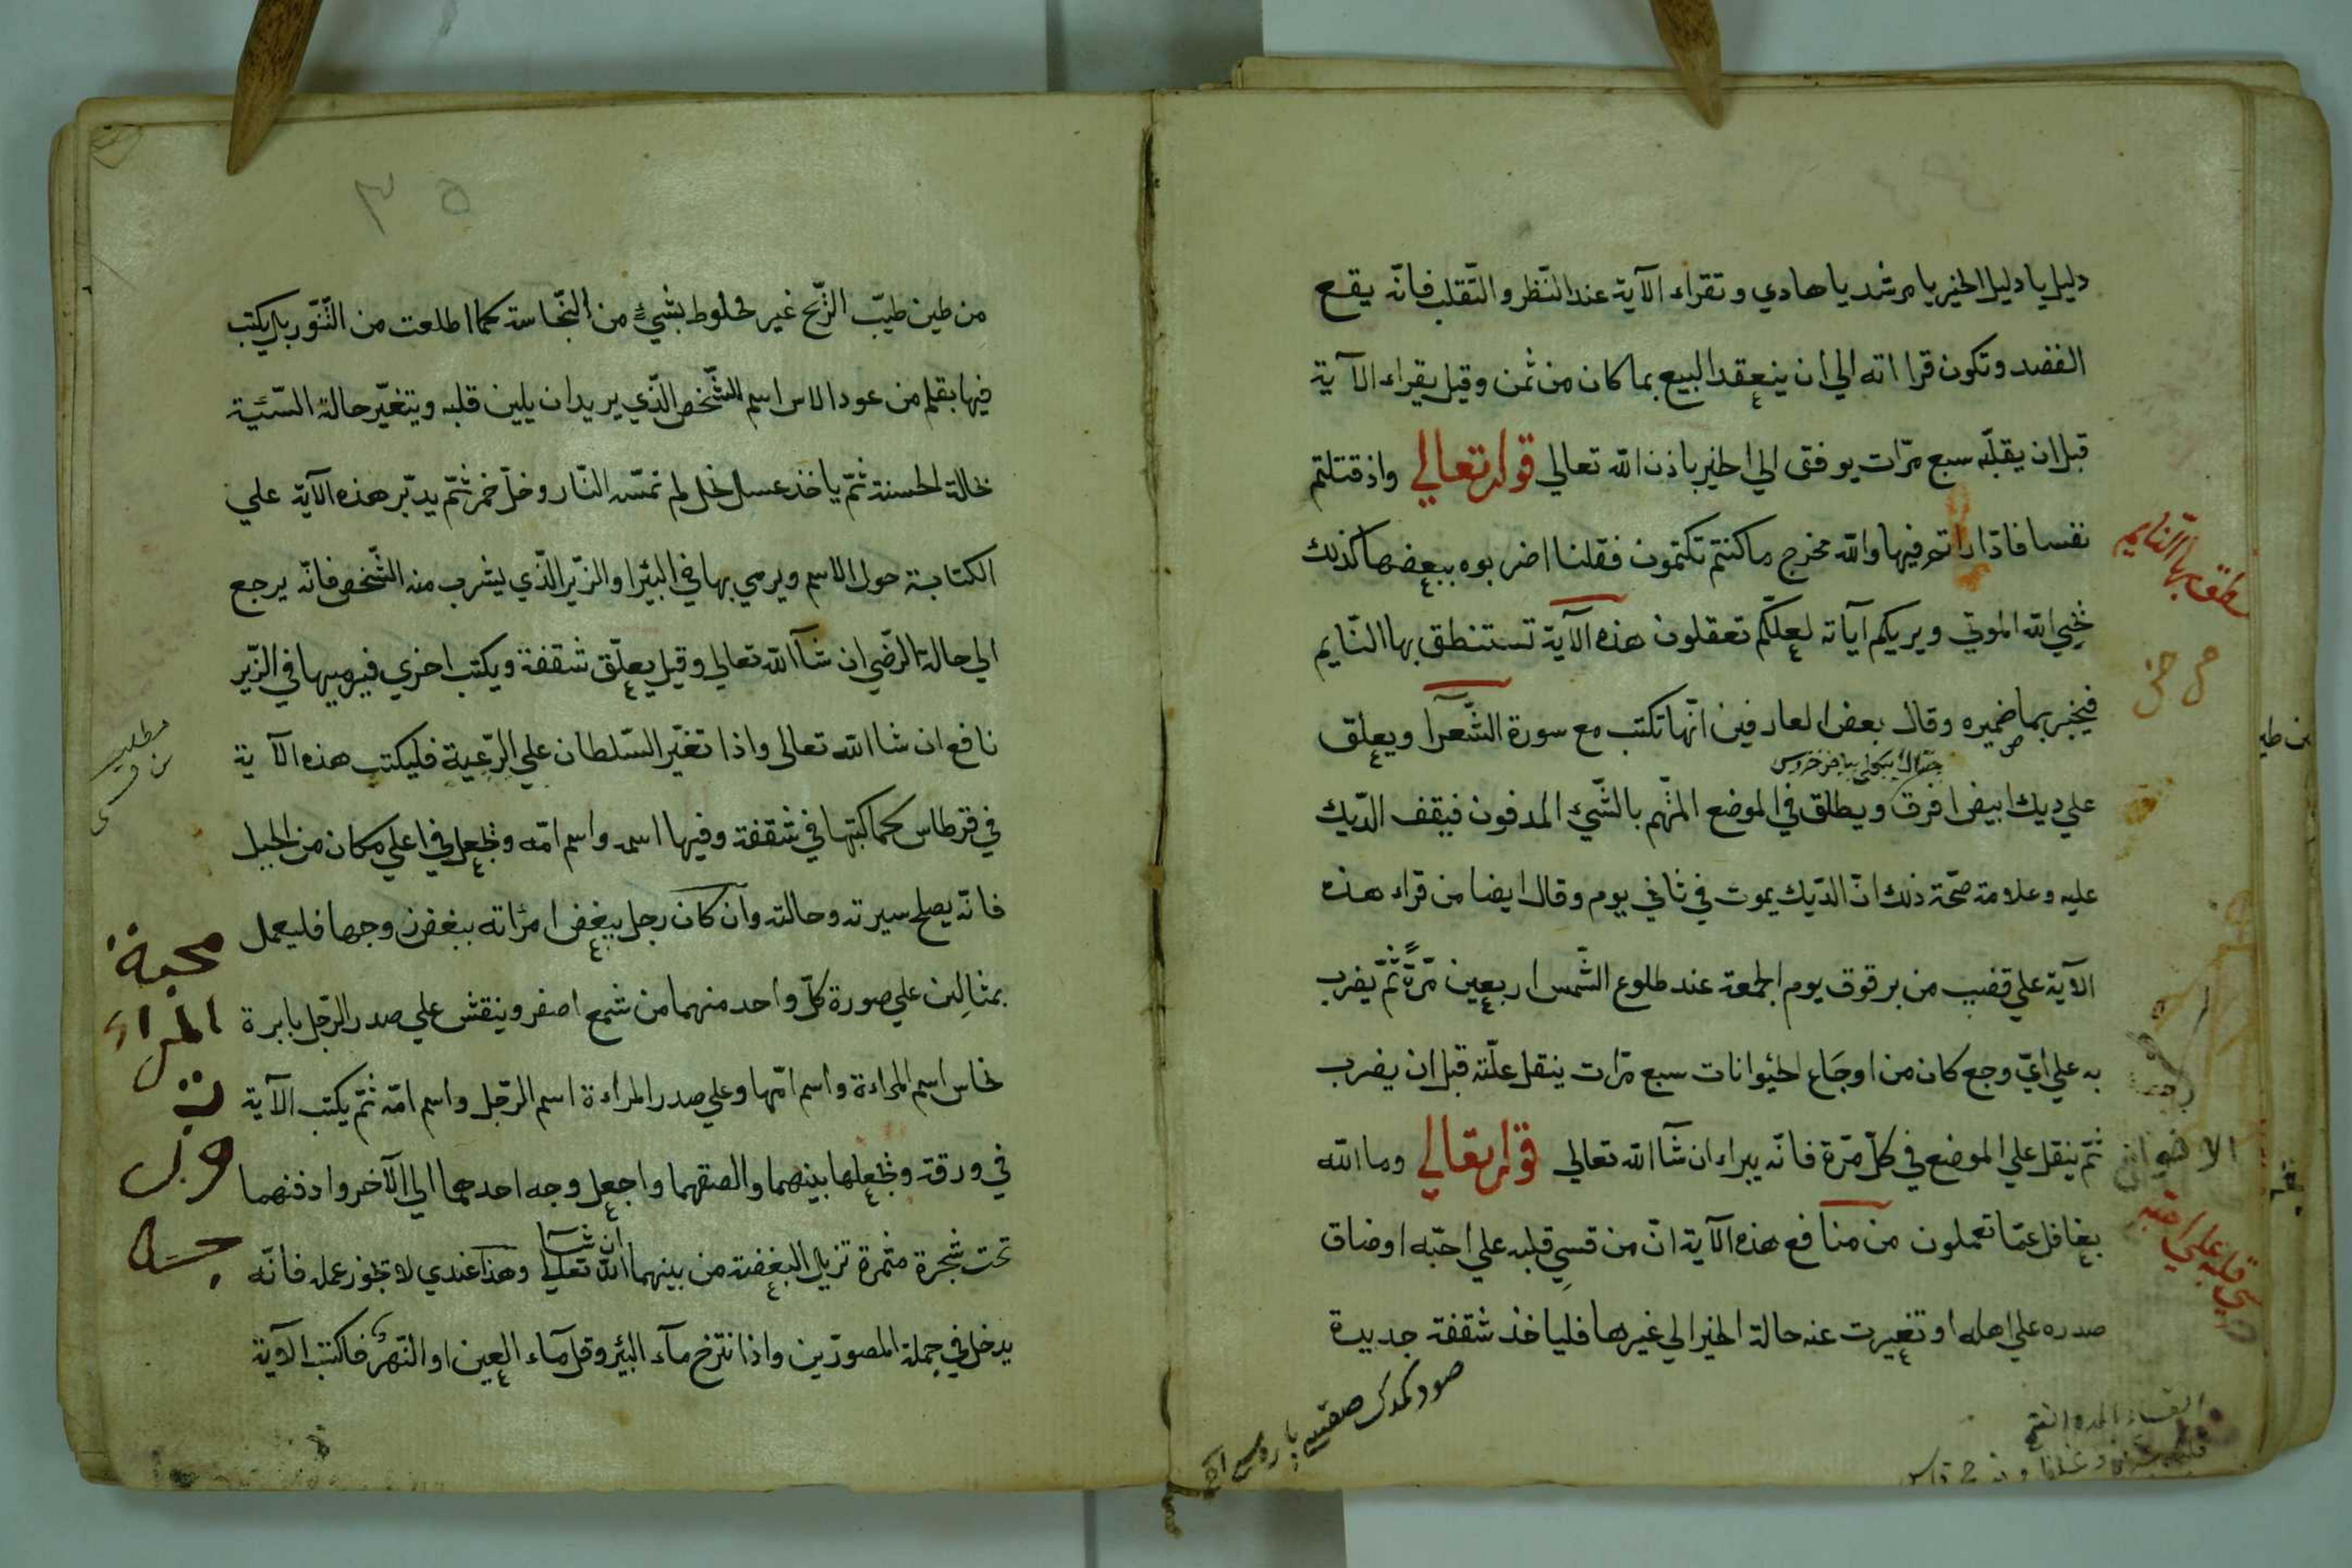 دليل يا دليل الخير يا مرشد يا هادي وتقراء الآية عند النّظر والتّقلب فانّه يقع
القصد وتكون قرااته الي ان ينعقد البيع بما كان من ثمن وقيل يقراء الآية
قبل ان يقلّبه سبع مرّات يوفق الي الخير باذن الله تعالي قوله تعالي واذ قتلتم
نفسا فادّاراتم فيها والله مخرج ما كنتم تكتمون فقلنا اضربوه ببعضها كذلك
يحيي الله الموتي ويريكم آياته لعلّكم تعقلون هذه الآية تستنطق بها النّايم
فيخبر بما ضميره وقال بعض العارفين انّها تكتب مع سورة الشّعرآ ويعلق
علي ديك ابيض افرق ويطلق في الموضع المتّهم بالشّيء المدفون فيقف الدّيك
عليه وعلامة صحّة ذلك انّ الدّيك يموت في ثاني يوم وقال ايضا من قراء هذه
الآية علي قضيب من برقوق يوم الجمعة عند طلوع الشّمس اربعين مرّةً ثمّ يضرب
به علي ايّ وجع كان من اوجَاع الحيوانات سبع مرّات ينقل علّته قبل ان يضرب
ثمّ ينقل علي الموضع في كلّ مرّة فانّه يبراء ان شآ الله تعالي قوله تعالي وما الله
بغافل عمّا تعملون من منافع هذه الآية انّ من قسي قلبه علي احبّه او ضاق
صدره علي اهله او تغيرت عنه حالة الخير الي غيرها فلياخذ شقفة جديدة
نطق بها النّايم
قلبه علي احبّه
٣٥
من طين طيّب الرّيح غير مخلوط بشيءٍ من النّجاسة كما اطلعت من التّنّور بل يكتب
فيها بقلم من عود الاس اسم الشّخص الّذي يريد ان يلين قلبه ويتغيّر حالة السّئية
بحالة الحسنة ثمّ ياخذ عسل نحل لم تمسّه النّار وخلّ خمر ثمّ يدبّر هذه الآية علي
الكتابة حول الاسم ويرمي بها في البئر او الزّير الّذي يشرب منه الشّخص فانّه يرجع
الي حالة الرّضي ان شآ الله تعالي وقيل يعلّق شقفة ويكتب اخري فيرميها في الزّير
نافع ان شا الله تعالى واذا تغيّر السّلطان علي الرّعية فليكتب هذه الآية
في قرطاس كما كتبتها في شقفة وفيها اسمه واسم امّه وتجعل في اعلي مكان من الجبل
فانّه يصلح سيرته وحالته وان كان رجل يبغض امرئاته ببغض زوجها فليعمل
بمثالين علي صورة كلّ واحد منهما من شمع اصفر وينقش علي صدر الرّجل بابرة
نحاس اسم المراءة واسم امّها وعلي صدر المراءة اسم الرّجل واسم امّه ثمّ يكتب الآية
في ورقة وتجعلها بينهما والصقهما واجعل وجه احدهما الي الآخر وادفنهما
تحت شجرة مثمرة تزيل البغضة من بينهما ان شآ الله تعالي وهذا عندي لا تجوز عمله فانّه
يدخل في جملة المصوّرين واذا نتزح مآء البئر وقل مآء العين او النّهر فاكتب الآية
مطلب
محبة
المراة